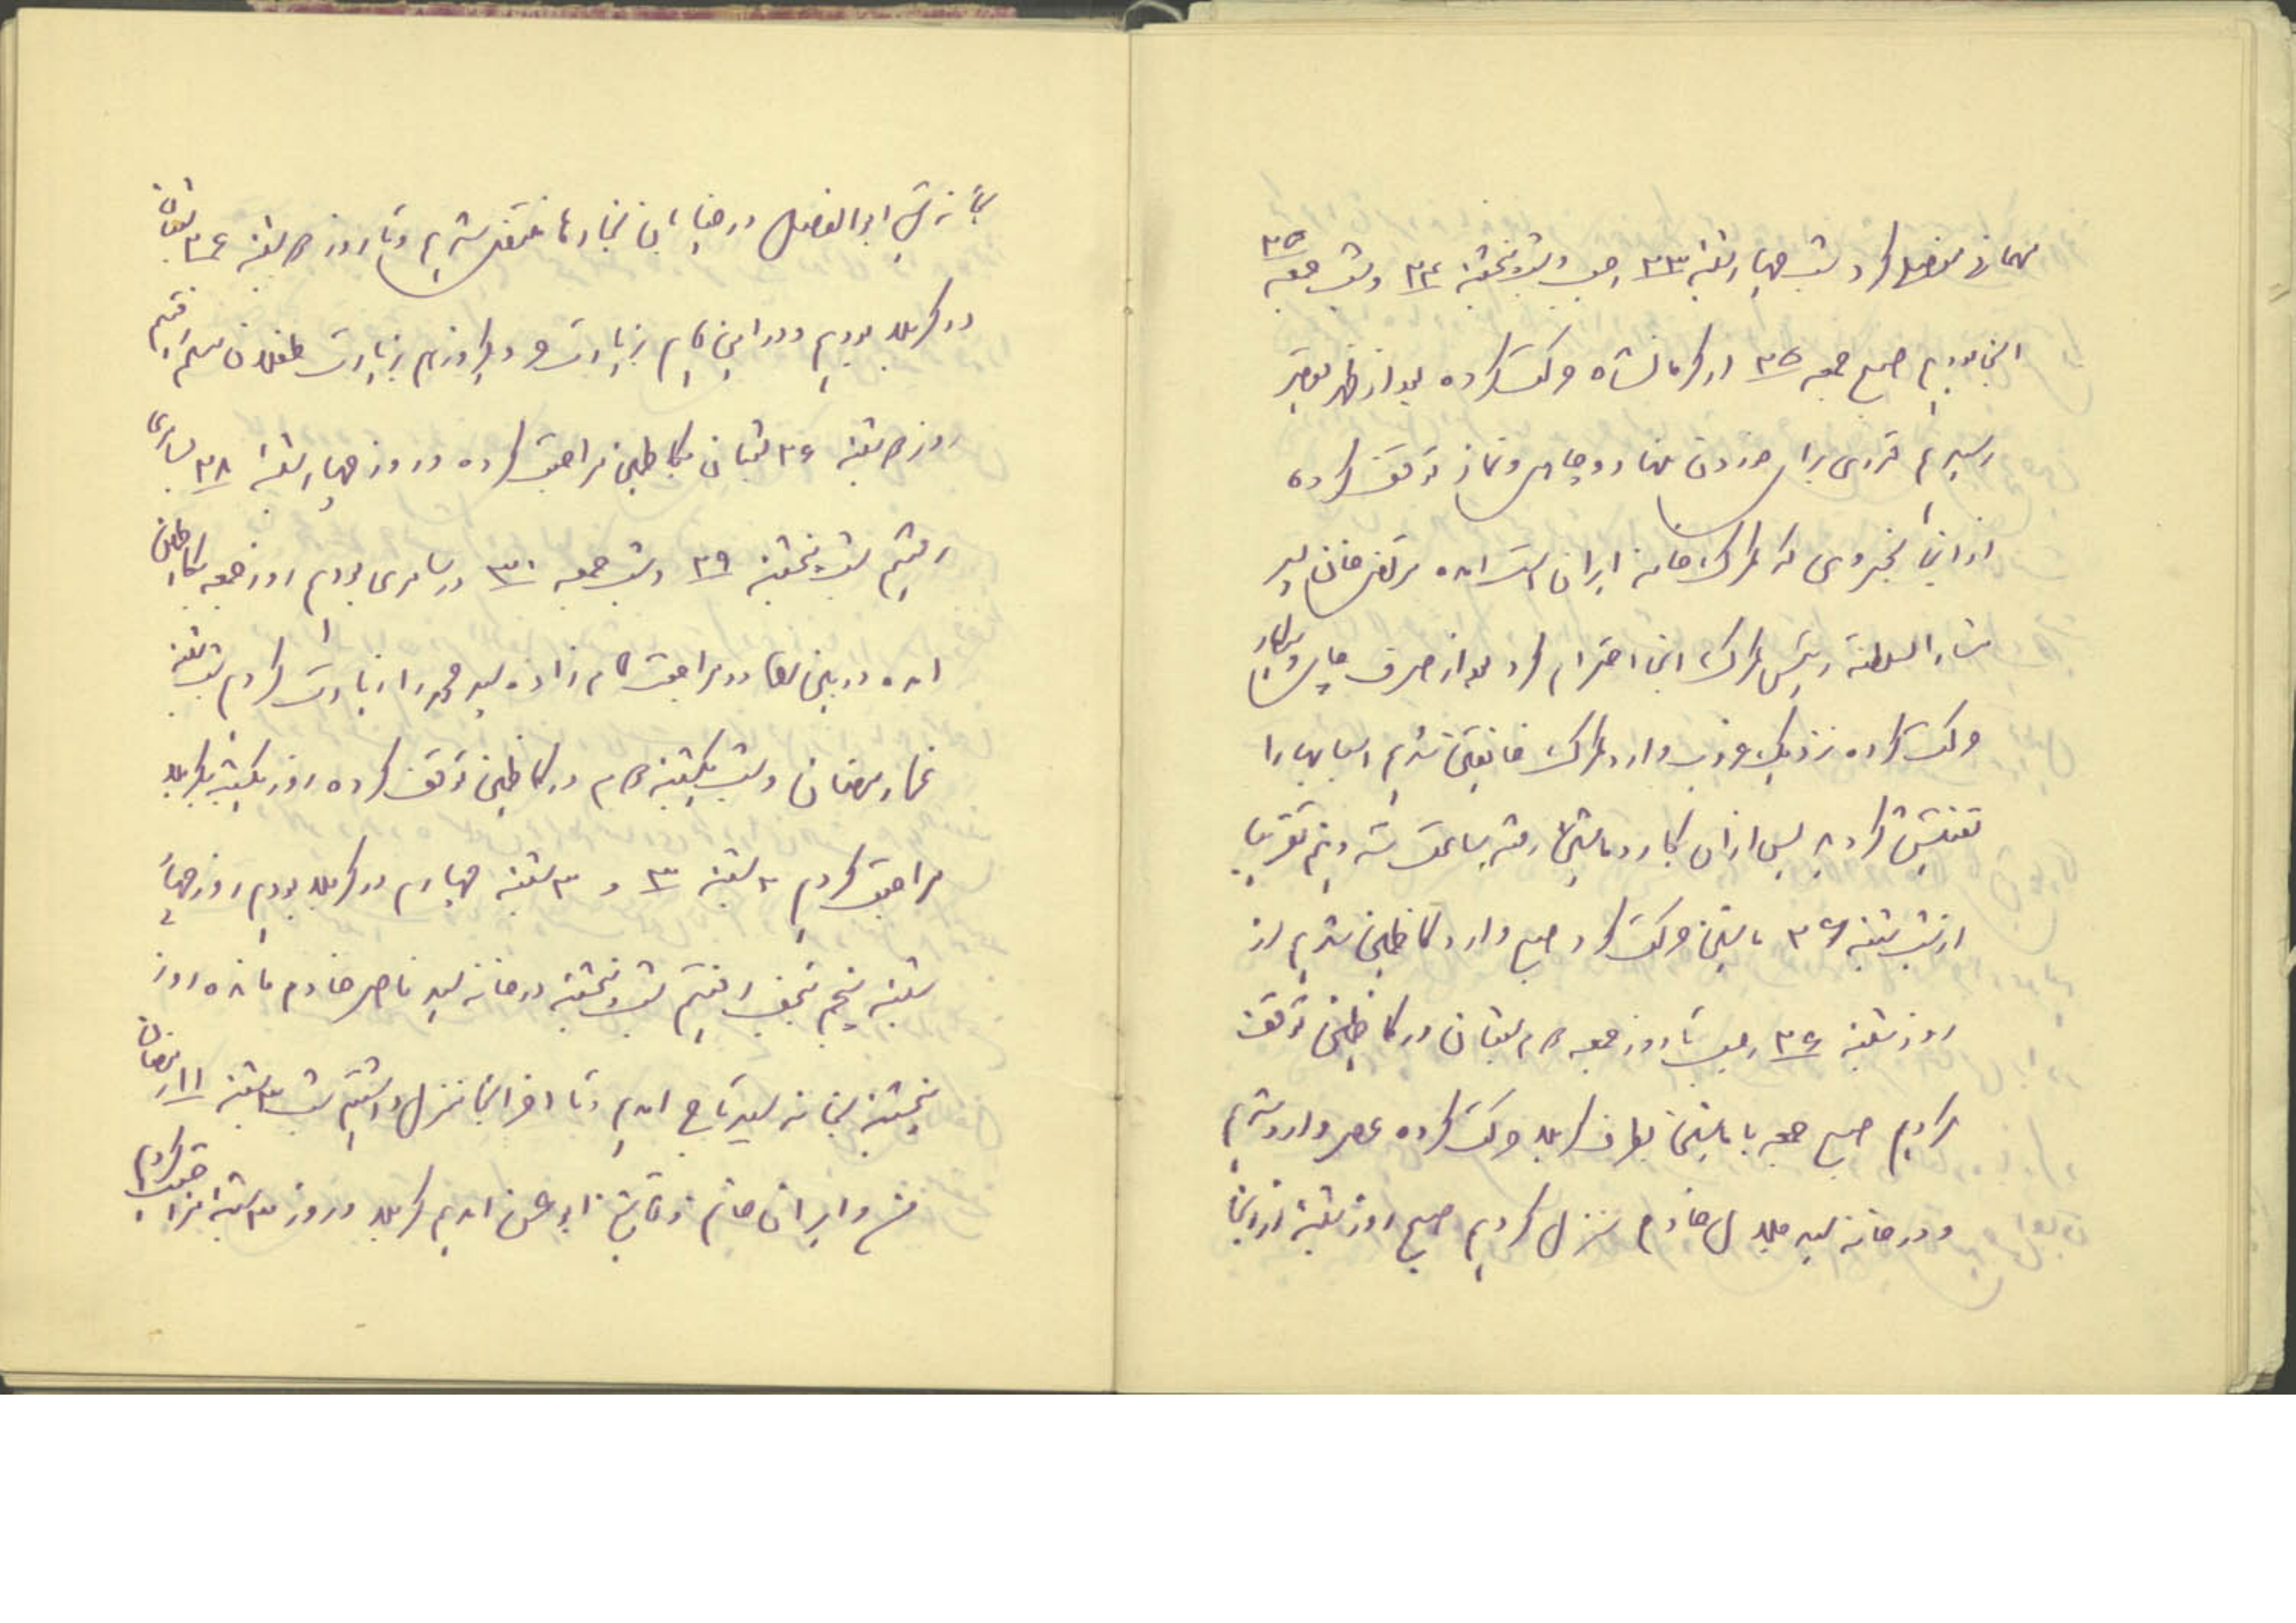 مهمانی مفصل کرد شب چهارشنبه ۲۳ رجب و شب پنجشنبه ۲۴ و شب جمعه ۲۵
آنجا بودیم صبح جمعه ۲۵ از کرمانشاه حرکت کرده بعد از ظهر بقصر
رسیدیم قدری برای خوردن نهار و چای و نماز توقف کرده
از آنجا بخسروی که گمرکخانه ایران است آمده مرتضی خان پسر
السلطنه رئیس گمرک آنجا احترام کرد بعد از صرف چای و سیگار
حرکت کرده نزدیک غروب وارد گمرک خانقین شدیم اسبابها را
تفتیش کردند پس از آن بگار و ماشین رفته ساعت سه و نیم تقریبا
از شب شنبه ۲۶ ماشین حرکت کرد صبح وارد کاظمین شدیم از
روز شنبه ۲۶ رجب تا روز جمعه شعبان در کاظمین توقف
کردیم صبح جمعه با ماشین بطرف کربلا حرکت کرده عصر وارد شدیم
و در خانه سید خادم منزل کردیم صبح روز شنبه از آنجا
بخانه ابوالفضل در خیابان منتقل شدیم و تا روز شنبه ۲۶ شعبان
در کربلا بودیم و در این ایام زیارت حر و یکروز هم زیارت طفلان مسلم رفتیم
روز شنبه ۲۶ شعبان بکاظمین مراجعت کرده و روز چهارشنبه ۲۸ بسامری
رفتیم شب پنجشنبه ۲۹ و شب جمعه ۳۰ در سامری بودیم روز جمعه بکاظمین
آمده در بین راه در مراجعت امامزاده سید محمد را زیارت کردیم شب شنبه
رمضان و شب یکشنبه هم در کاظمین توقف کرده روز یکشنبه بکربلا
مراجعت کردیم ۲ شنبه ۳ و ۳ شنبه چهارم در کربلا بودیم روز چهار
شنبه پنجم بنجف رفتیم شب پنجشنبه در خانه سید ناصر خادم مانده روز
پنجشنبه بخانه سید آمدیم و تا آخر آنجا منزل داشتیم شب ۳ شنبه ۱۱ رمضان
من و ایران خانم آمدیم کربلا و روز ۳ شنبه مراجعت کردیم